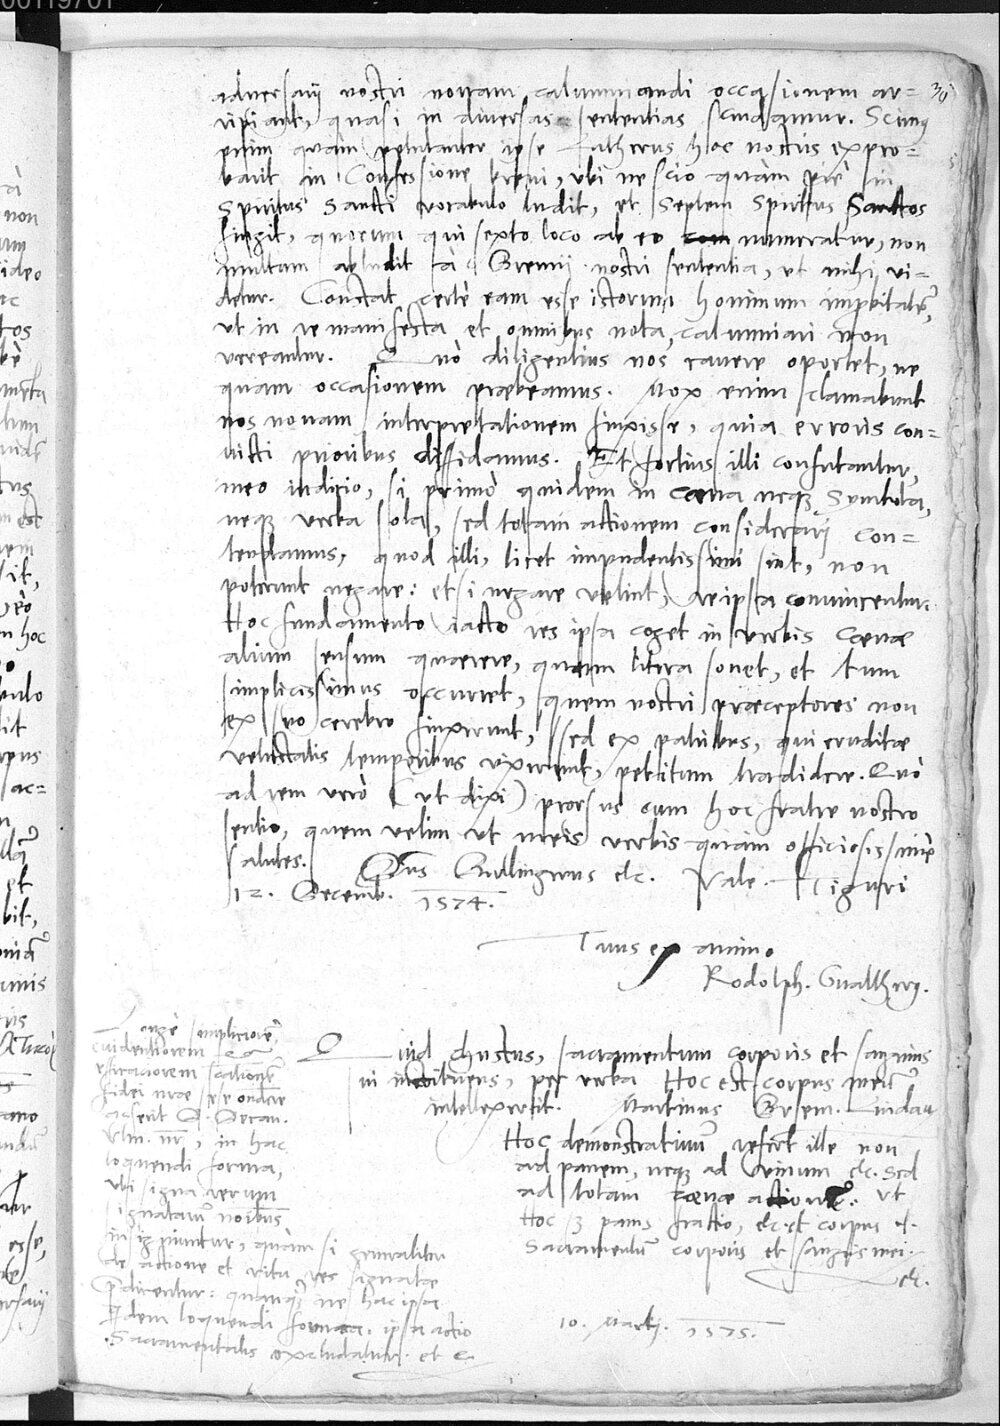 00119701
adversarij nostri novam calumniandi occasionem ar=
ripiant, quasi in diversas sententias scindamur. Scimus
enim quàm petulanter ipse Lutherus hoc nostris expro=
barit in Confessione brevi, ubi nescio quàm piè in
Spiritus Sancti vocabulo ludit, et septem Spiritus Sanctos
fingit, quorum qui sexto loco ab eo numeratur, non
multum abludit à Bremij nostri sententia, ut mihi vi=
detur. Constat certè eam esse istorum hominum improbitatem,
ut in re manifesta et omnibus nota, calumniari non
vereantur. Quò diligentius nos cavere oportet, ne
quam occasionem præbeamus. Mox enim clamabunt
nos novam interpretationem finxisse, quia erroris con=
victi prioribus diffidamus. Et fortius illi confutantur,
meo iudicio, si primò quidem in cœna neque symbola,
neque verba sola, sed totam actionem considerari con=
tendamus, quod illi, licet impudentissimi sint, non
poterunt negare: et si negare velint, re ipsa convincentur.
Hoc fundamento iacto res ipsa coget in verbis Cœnæ
alium sensum quærere, quàm litera sonet, et tum
simplicissimus occurret, quem nostri præceptores non
ex suo cerebro finxerunt, sed ex patribus, qui eruditæ
vetustatis temporibus vixerunt, petitum tradidere. Quò
ad rem verò (ut dixi) prorsus cum hoc fratre nostro
sentio, quem velim ut meis verbis quàm officiosissimè
salutes. Dnus Bullingerus etc. Vale. Tiguri
12. Decemb. 1574.
Tuus ex animo
Rodolph. Gualtherus.
Quid Christus, sacramentum corporis et sanguinis
instituens, per verba Hoc est corpus meum
intellexerit. Martinus Brem. Lindau
Hoc demonstrativum refert ille non
ad panem, neque ad vinum etc. Sed
ad totam cœnæ actionem. ut
Hoc panis fractio, etc. est corpus
Sacramentum corporis et sanguinis mei.
etc.
10. Martij. 1575.
Longè simpliciorem,
evidentiorem
efficaciorem
fidei nræ
asserit D. Decan.
Ulm. nr, in hac
loquendi forma,
ubi signa rerum
signatarum noibus
insigniuntur, quàm si generaliter
de actione et ritu res signatæ
prædicentur: quanquam ne hac ipsa
quidem loquendi forma, ipsa actio
Sacramentalis excludatur. etc.